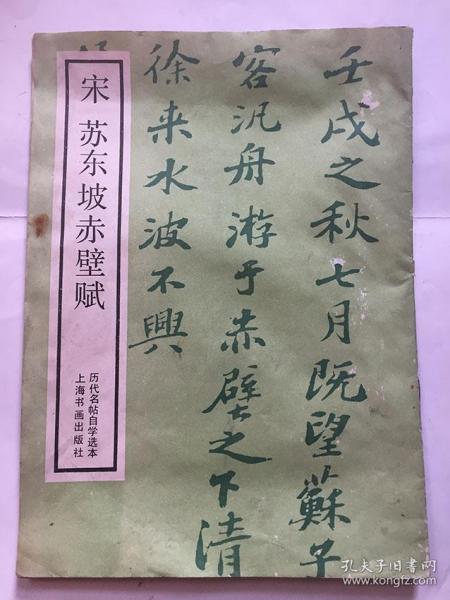 壬戌之秋七月既望蘇子
客汎舟游于赤壁之下清
徐来水波不興
宋 苏东坡赤壁赋
历代名帖自学选本
上海书画出版社
孔夫子旧书网
www.kongfz.com